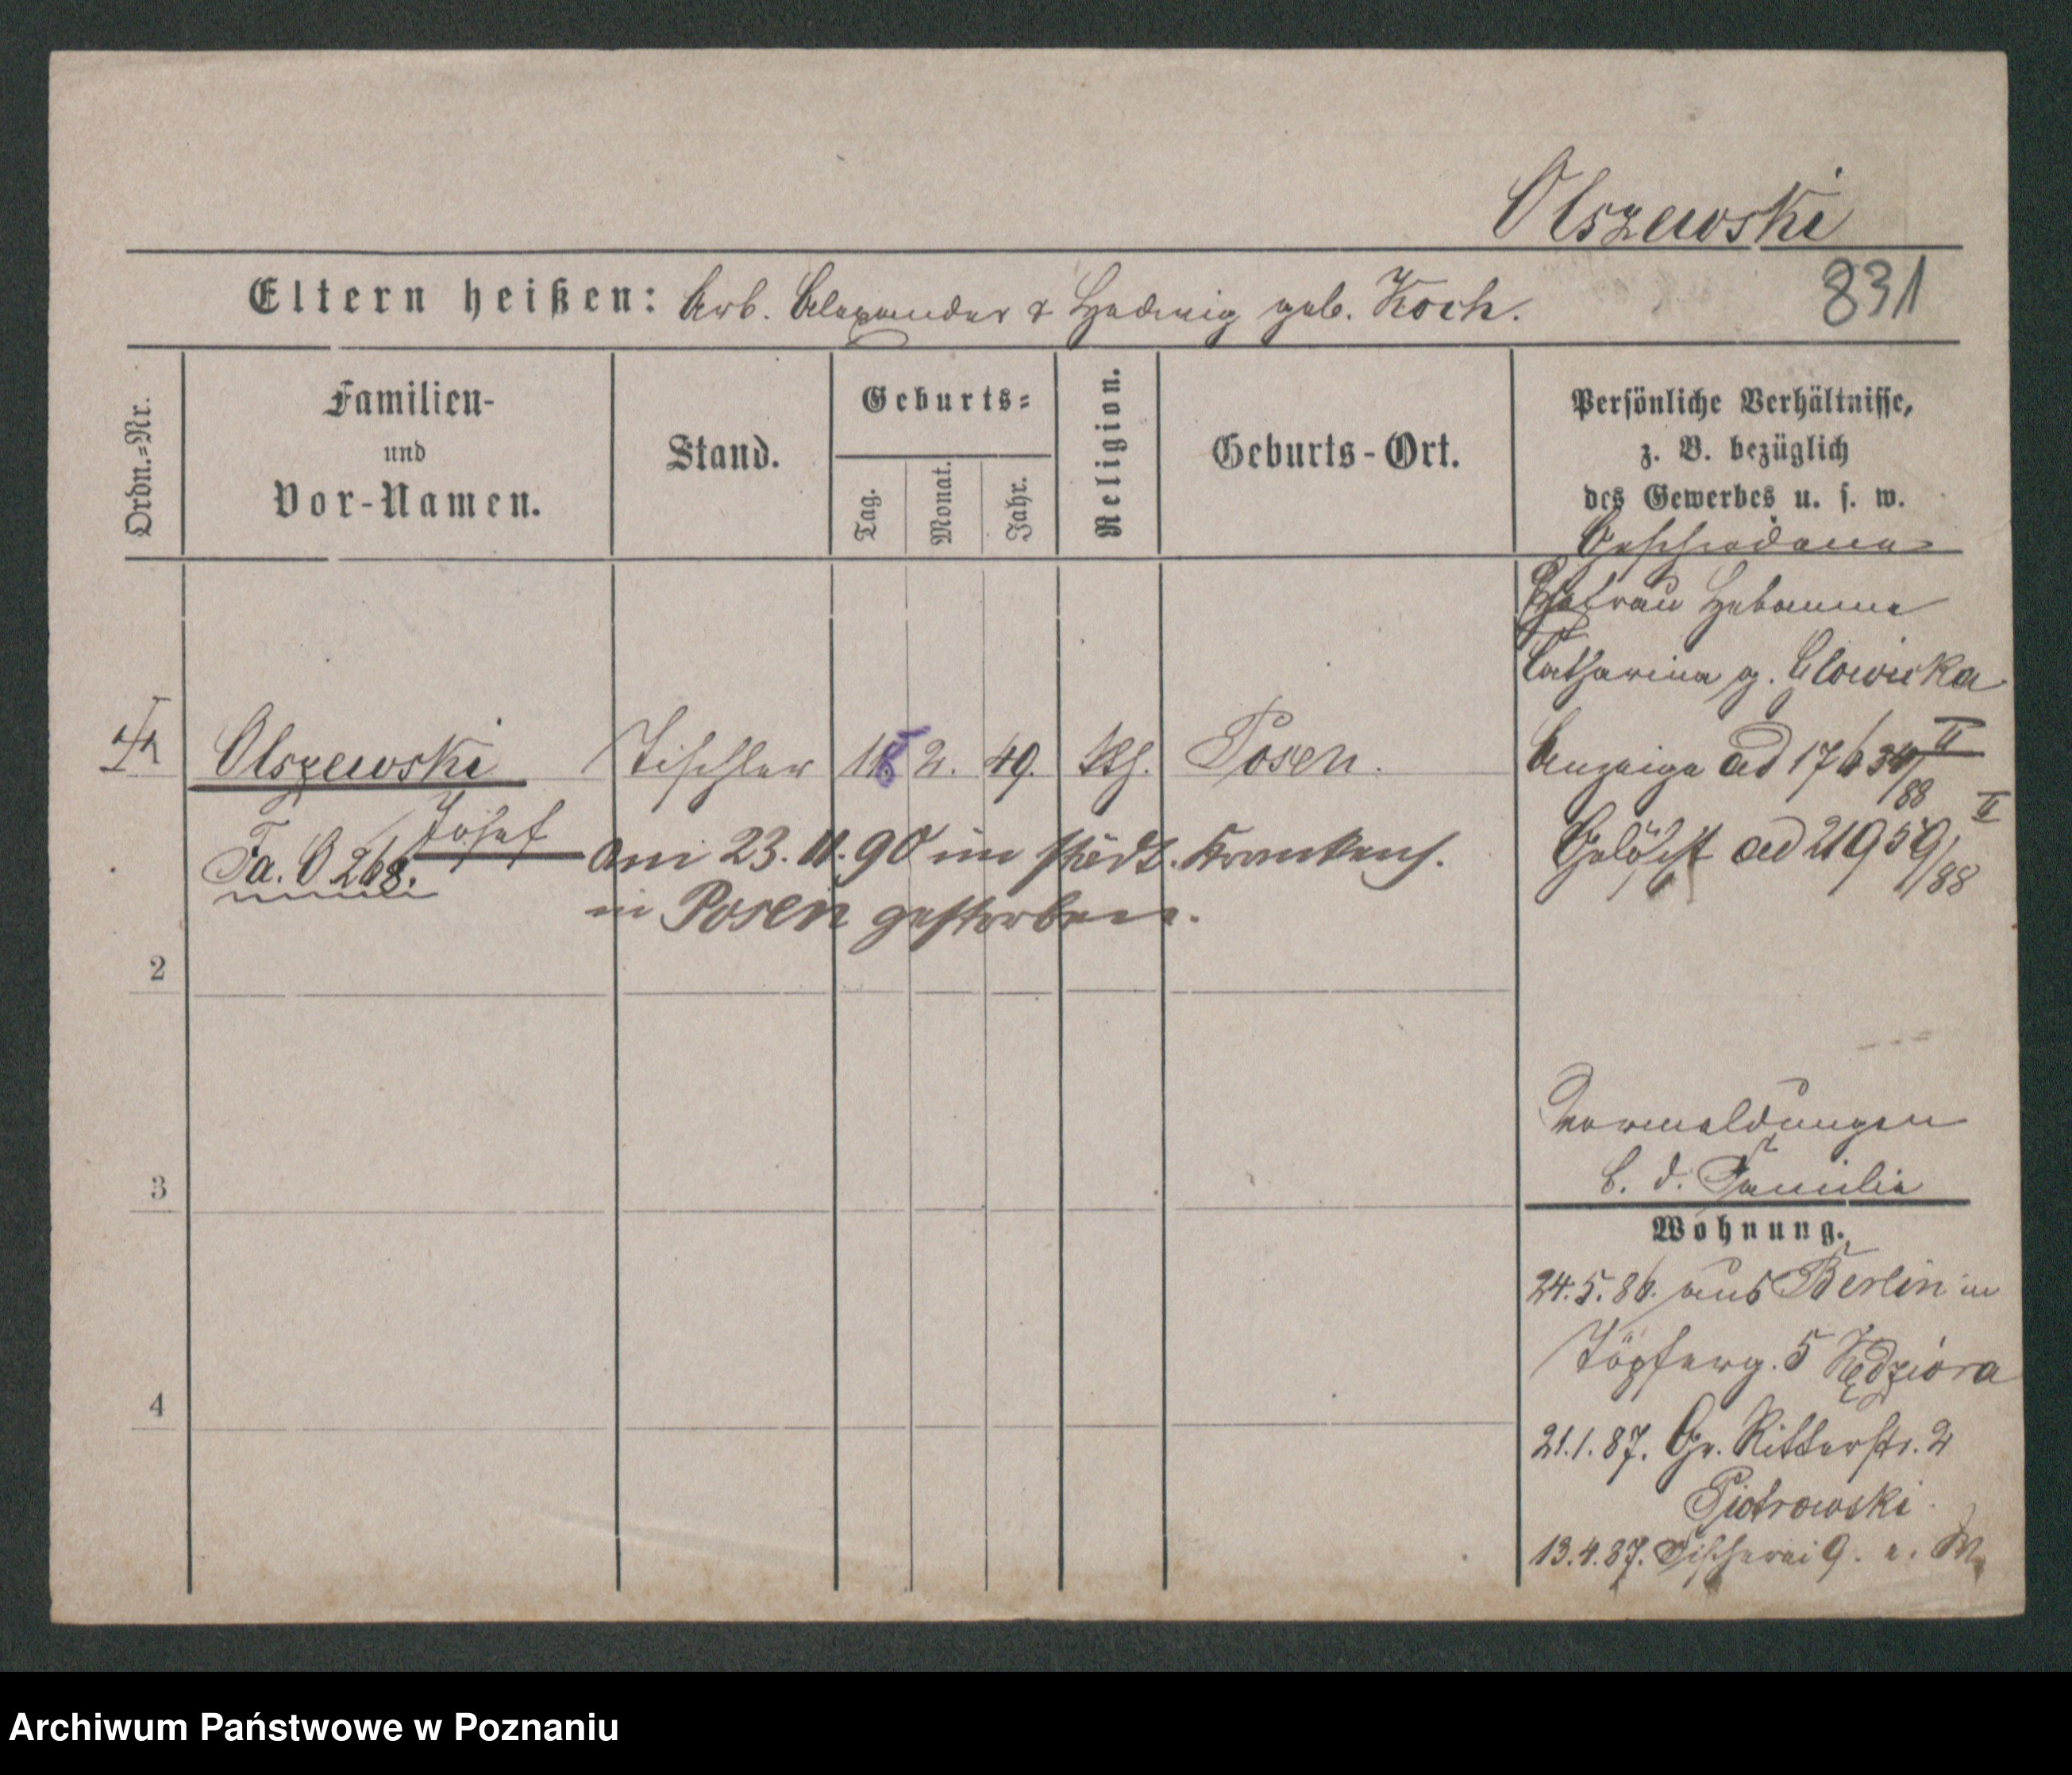 Olszewski
831
Eltern heißen: Arb. Alexander & Hedwig geb. Koch.
Ordn.=Nr.
Familien-
und
Vor-Namen.
Stand.
Geburts=
Tag.
Monat.
Jahr.
Religion.
Geburts-Ort.
Persönliche Verhältnisse,
z. B. bezüglich
des Gewerbes u. s. w.
Geschiedene
Ehefrau Hebamme
Catharina g.
Olszewski Tischler 2. 49. kth. Posen.
Josef
Fa. O 268.
Anzeige ad 17634/88 II
Gelöscht ad 21959/88 II
am 23. 11. 90 im städt. Krankenh.
in Posen gestorben.
2
3
4
Vormeldungen
b. d. Familie
Wohnung.
24. 5. 86. aus Berlin in
Töpferg. 5 Kędziora
21. 1. 87. Gr. Ritterstr. 2
Piotrowski
13. 4. 87. Fischerei 9.
Archiwum Państwowe w Poznaniu